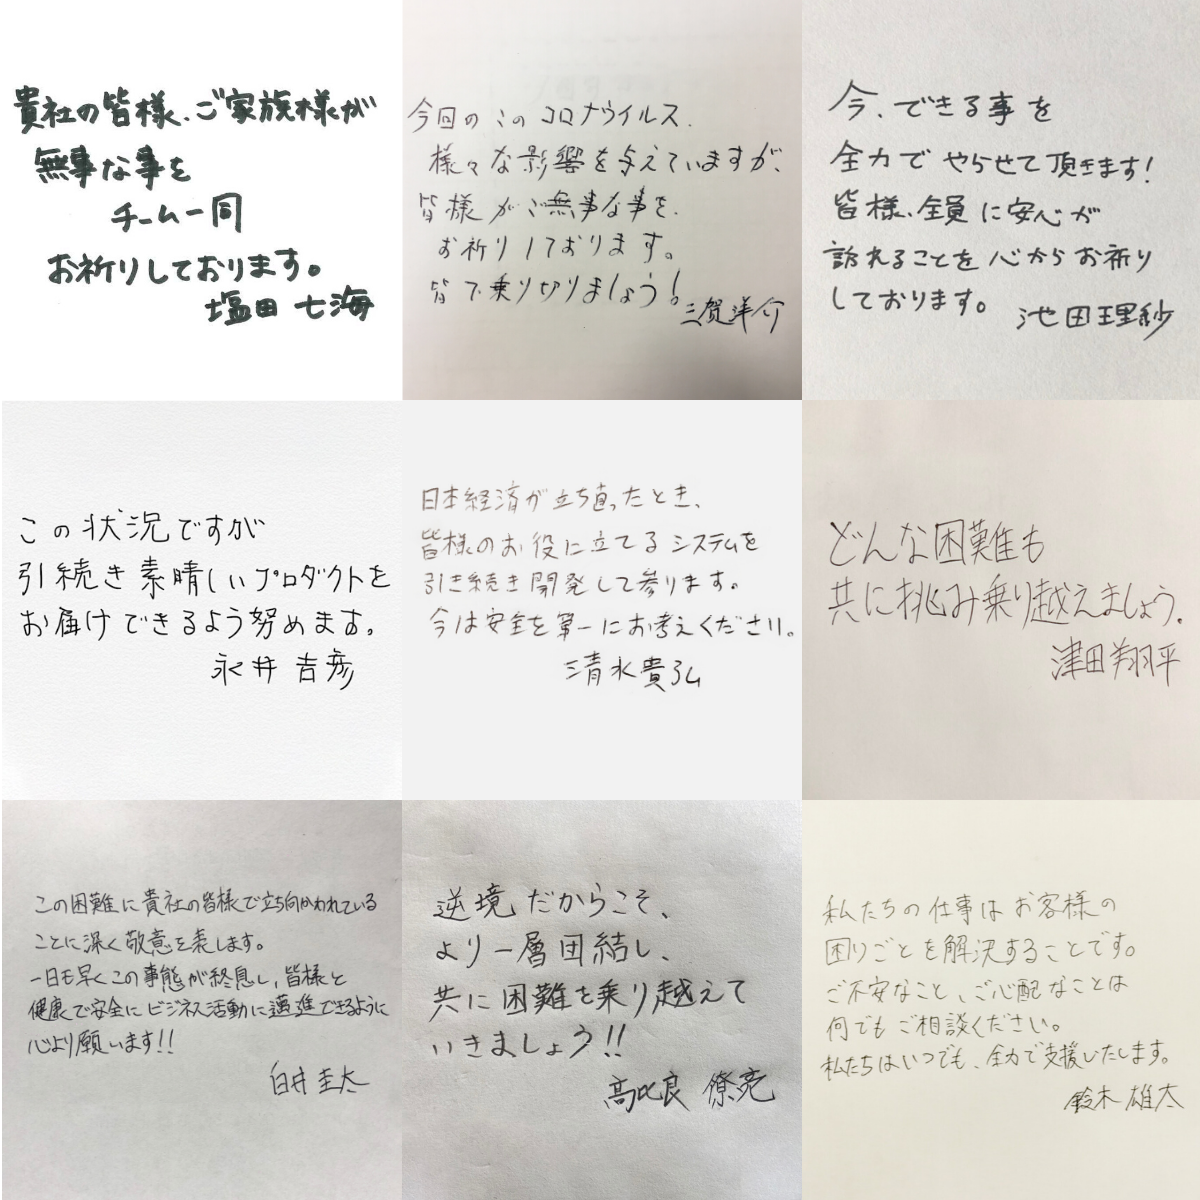 貴社の皆様、ご家族様が
無事な事を
チーム一同
お祈りしております。
塩田 七海
今回のこのコロナウイルス、
様々な影響を与えていますが、
皆様がご無事な事を、
お祈りしております。
皆で乗り切りましょう!
三賀洋介
今、できる事を
全力でやらせて頂きます!
皆様、全員に安心が
訪れることを心からお祈り
しております。
池田理紗
この状況ですが
引続き素晴しいプロダクトを
お届けできるよう努めます。
永井 吉彦
日本経済が立ち直ったとき、
皆様のお役に立てるシステムを
引き続き開発して参ります。
今は安全を第一にお考えください。
清水貴弘
どんな困難も
共に挑み乗り越えましょう。
津田翔平
この困難に貴社の皆様で立ち向かわれている
ことに深く敬意を表します。
一日も早くこの事態が終息し、皆様と
健康で安全にビジネス活動に邁進できるように
心より願います!!
白井圭太
逆境だからこそ、
より一層団結し、
共に困難を乗り越えて
いきましょう!!
高比良 僚亮
私たちの仕事はお客様の
困りごとを解決することです。
ご不安なこと、ご心配なことは
何でもご相談ください。
私たちはいつでも、全力で支援いたします。
鈴木 雄太